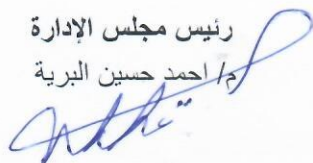 رئيس مجلس الإدارة
م/ احمد حسين البرية